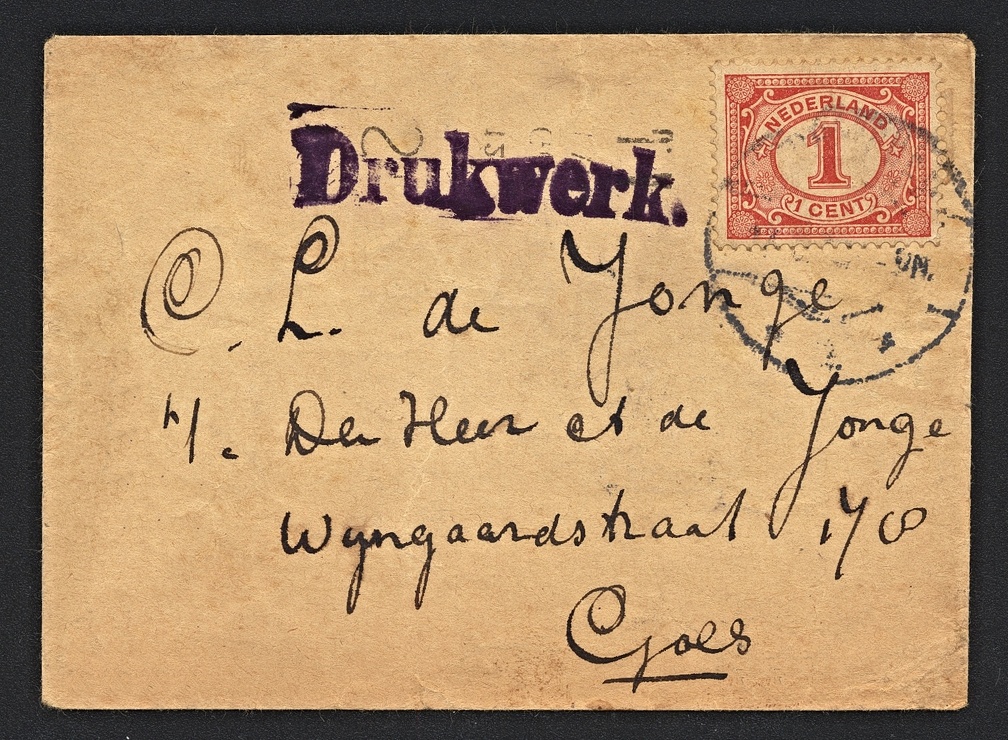 Drukwerk.
NEDERLAND
1
1 CENT
C. L. de Jonge
Den Heer de Jonge
Wyngaardstraat
Goes